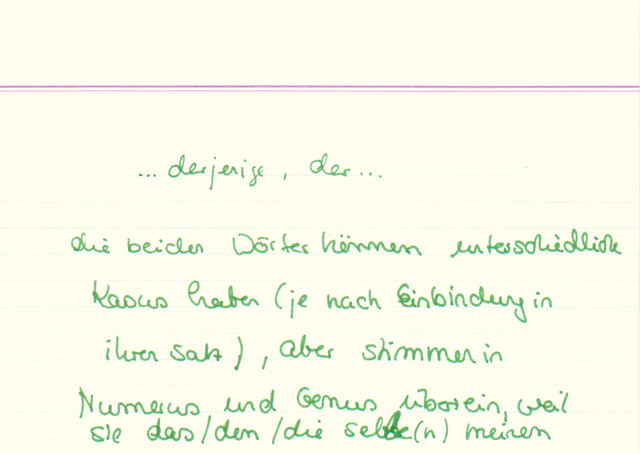 ... derjenige, der...
die beiden Wörter können unterschiedliche
Kasus haben (je nach Einbindung in
ihren Satz), aber stimmen in
Numerus und Genus überein, weil
sie das/den/die selbe(n) meinen